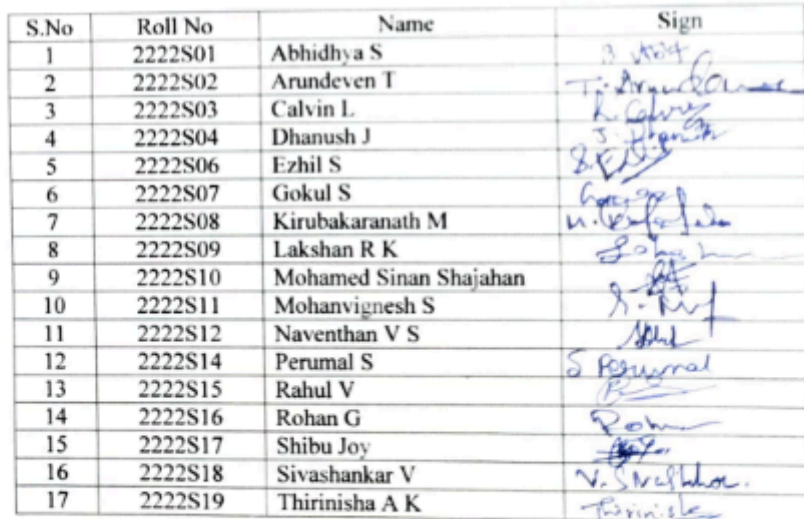 S.No Roll No Name Sign
1 2222S01 Abhidhya S
2 2222S02 Arundeven T
3 2222S03 Calvin L
4 2222S04 Dhanush J
5 2222S06 Ezhil S
6 2222S07 Gokul S
7 2222S08 Kirubakaranath M
8 2222S09 Lakshan R K
9 2222S10 Mohamed Sinan Shajahan
10 2222S11 Mohanvignesh S
11 2222S12 Naventhan V S
12 2222S14 Perumal S S Perumal
13 2222S15 Rahul V
14 2222S16 Rohan G
15 2222S17 Shibu Joy
16 2222S18 Sivashankar V
17 2222S19 Thirinisha A K